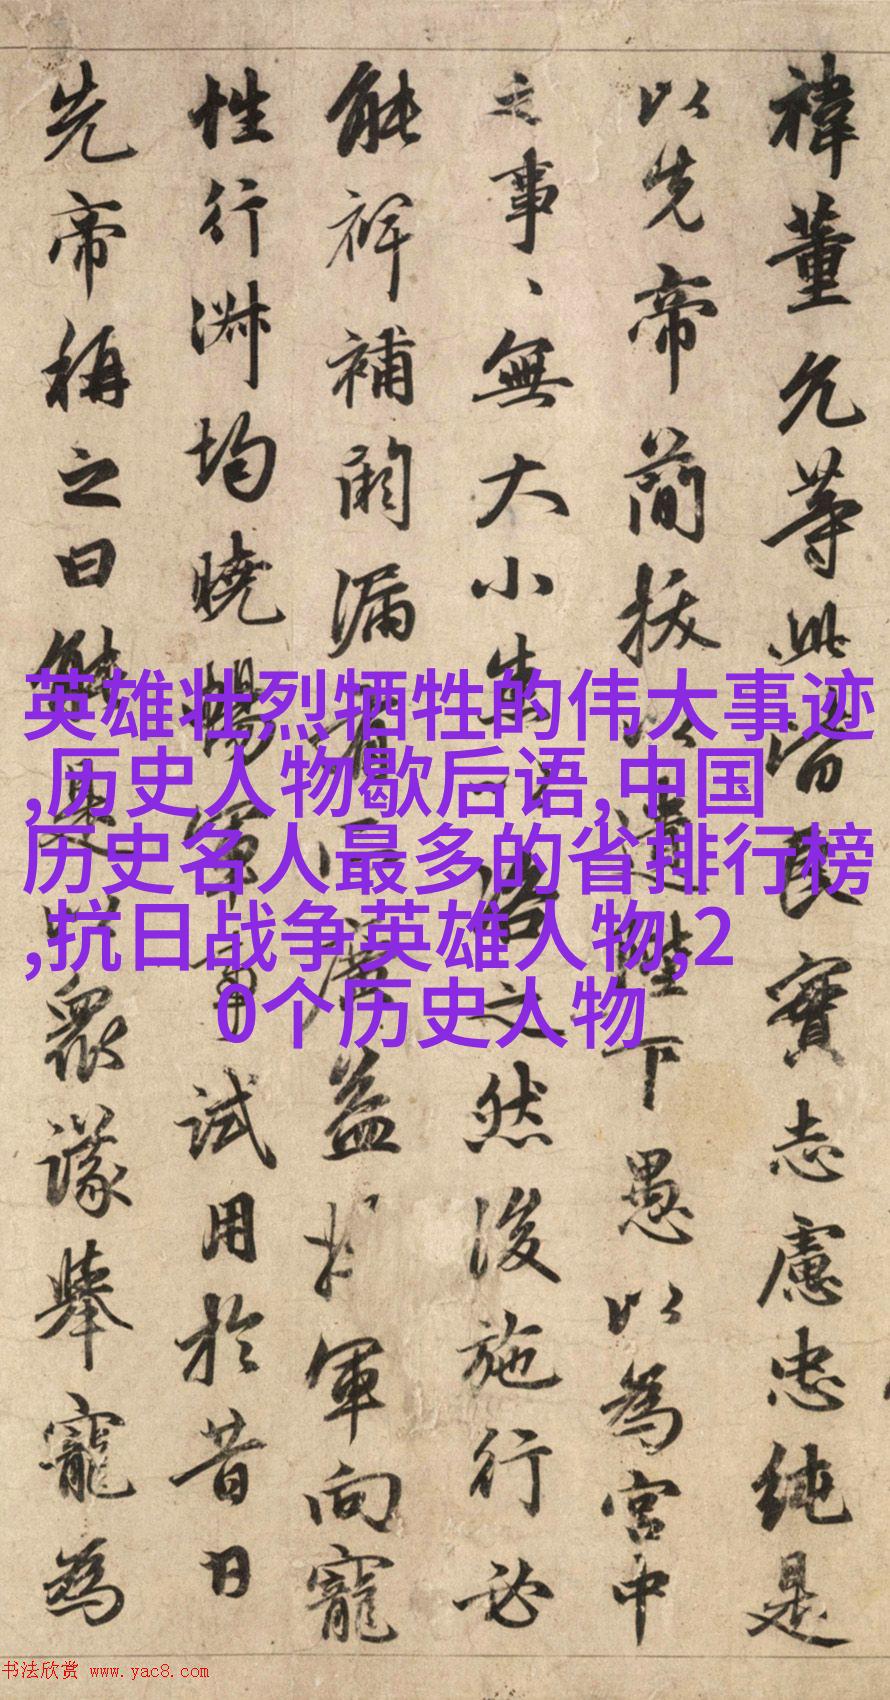 禕董允等此皆良實志慮忠純是
以先帝簡拔以遺陛下愚以為宮中
之事、無大小悉以咨之然後施行必
能裨補闕漏有所廣益將軍向寵
性行淑均曉暢軍事試用於昔日
先帝稱之曰能是以眾議舉寵為
英雄壮烈牺牲的伟大事迹
,历史人物歇后语,中国
历史名人最多的省排行榜
,抗日战争英雄人物,2
0个历史人物
书法欣赏 www.yac8.com